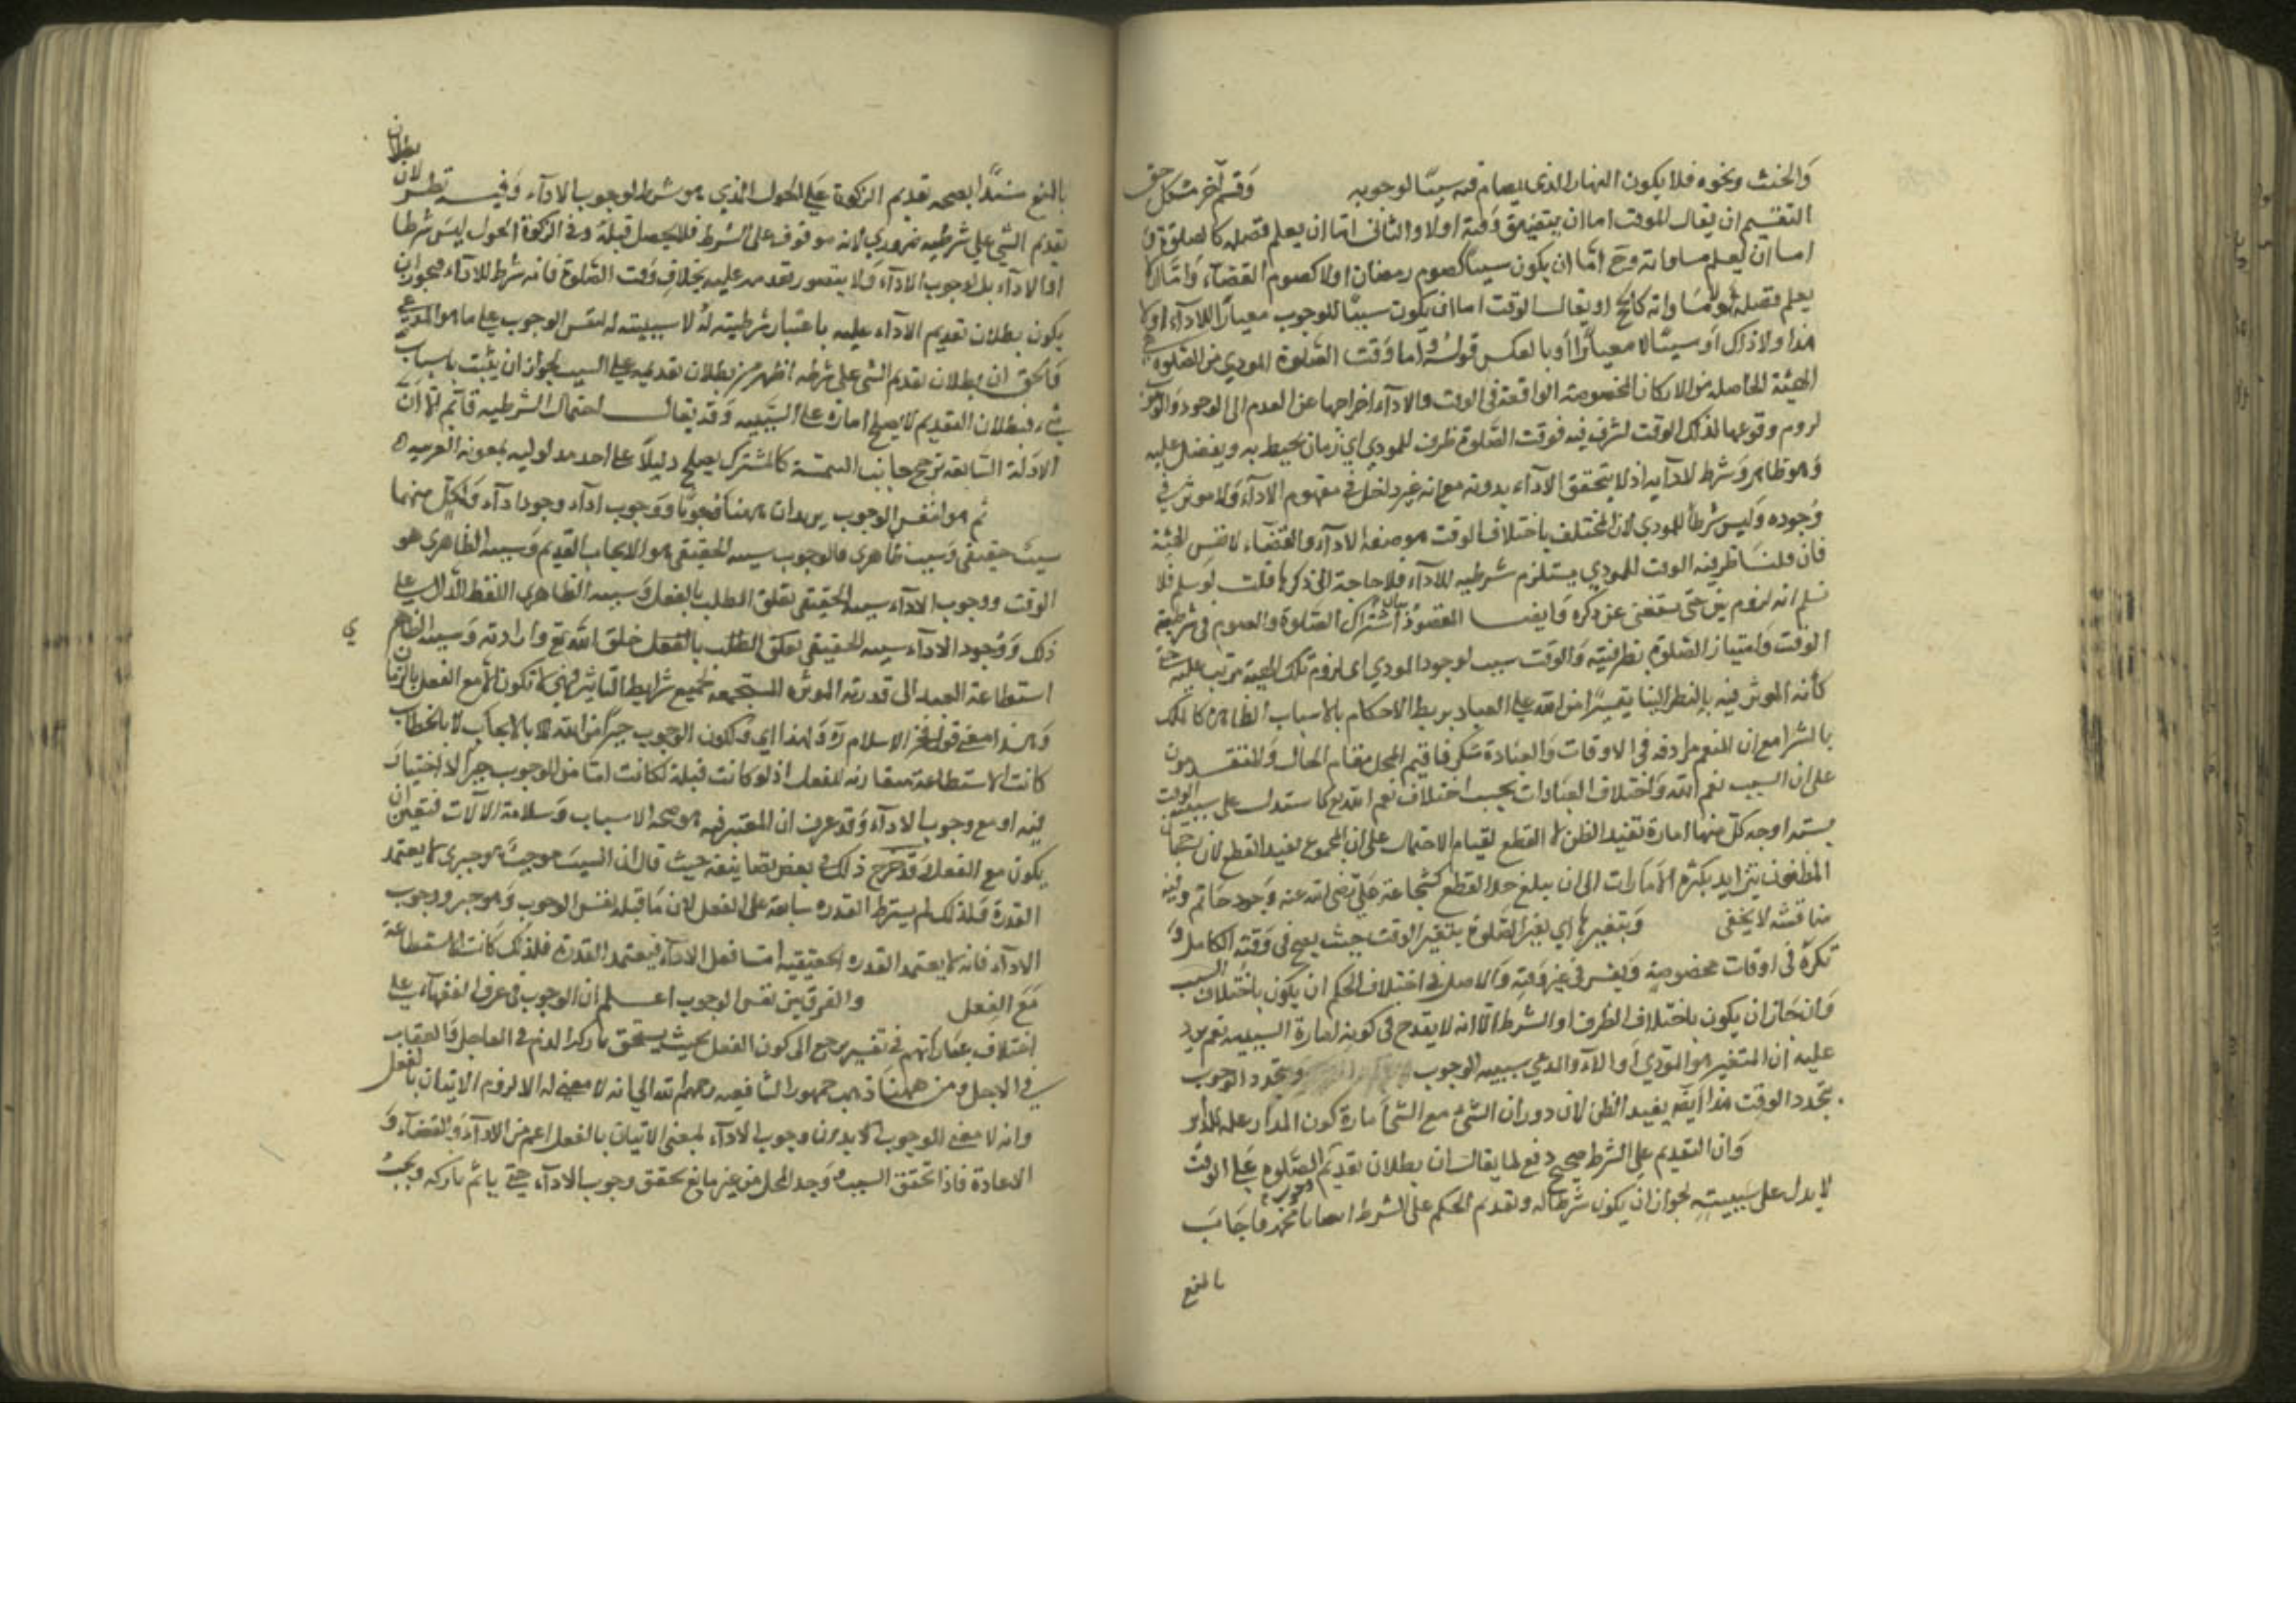 والحنث ونحوه فلا يكون النهار الذي يصام فيه سببا لوجوبه وقسم آخر مشكل حق
التقسيم ان يقال الموقت اما ان يتضيق وقته اولا والثاني اما ان يعلم فضله كالصلوة و
اما ان يعلم مساواته وح اما ان يكون سببا كصوم رمضان اولا كصوم القضاء واما ان لا
يعلم فضله ولا مساواته كالحج او يقال الوقت اما ان يكون سببا للوجوب معيارا للاداء او لا
هذا ولا ذاك او سببا لا معيارا او بالعكس قوله واما وقت الصلوة المودي من الصلوة
الهيئة الحاصلة من الاركان المخصوصة الواقعة في الوقت والاداء اخراجها من العدم الى الوجود والوجوب
لزوم وقوعها لذلك الوقت لشرف فيه فوقت الصلوة ظرف للمودي اي زمان يحيط به ويفضل عليه
وهو ظاهر وشرط للاداء اذ لا يتحقق الاداء بدونه مع انه غير داخل في مفهوم الاداء ولا موثر في
وجوده وليس شرطا للمودي لان المختلف باختلاف الوقت هو صفة الاداء والقضاء لا نفس الهيئة
فان قلت ظرفية الوقت للمودي يستلزم شرطيه للاداء فلا حاجة الى ذكرها قلت لو سلم فلا
نسلم انه لزوم بين حتى يستغنى عن ذكره وايضا المقصود بيان اشتراك الصلوة والصوم في شرطية
الوقت وامتياز الصلوة بظرفيته والوقت سبب لوجود المودي اى لزوم تلك الهيئة مرتب عليه حتى
كأنه الموثر فيه بالنظر الينا تيسيرا من الله على العباد بربط الاحكام بالاسباب الظاهرة كالملك
بالشرا مع ان النعم مرادفه في الاوقات والعبادة شكر فاقيم المحل مقام الحال والمتقدمون
على ان السبب نعم الله واختلاف العبادات بحسب اختلاف نعم الله تع كما ستدل على سببية الوقت
بستة اوجه كل منها امارة تفيد الظن لا القطع لقيام الاحتمال على ان المجموع يفيد القطع لان رجحان
المظنون يتزايد بكثرة الامارات الى ان يبلغ حد القطع كشجاعة علي رضى الله عنه وجود حاتم وفيه
مناقشة لا يخفى وبتغيرها اي بغير الصلوة بتغير الوقت حيث يصح في وقته الكامل و
تكره في اوقات مخصوصة ويفسد في غير وقته والاصل في اختلاف الحكم ان يكون باختلاف السبب
وان جاز ان يكون باختلاف الظرف او الشرط الا انه لا يقدح في كونه امارة السببيه نعم يرد
عليه ان المتغير هو المودي او الاداء والمدعي سببيه الوجوب وتجدد الوجوب
بتجدد الوقت هذا ايضا يفيد الظن لان دوران الشئ مع الشئ امارة كون المدار علة للدائر
وان التقديم على الشرط صحيح دفع لما يقال ان بطلان تقديم الصلوة على الوقت
لا يدل على سببيته لجواز ان يكون شرطا له وتقديم الحكم على الشرط ايضا فاجاب
بالمنع
بالمنع سندا بصحه تقديم الزكوة على الحول الذي هو شرط لوجوب الاداء وفيه نظر لان بطلان
تقديم الشئ على شرطيه ضروري لانه موقوف على الشرط فلا يحصل قبله وفي الزكوة الحول ليس شرطا
او الاداء بل لوجوب الاداء ولا يتصور تقدمه عليه بخلاف وقت الصلوة فانه شرط للاداء فيجوز ان
يكون بطلان تقديم الاداء عليه باعتبار شرطيته له لا سببيته له لنفس الوجوب على ما هو المدعي
فالحق ان بطلان تقديم الشئ على شرطه اظهر من بطلان تقديمه على السبب لجواز ان يثبت باسباب
شتى فبطلان التقديم لا يصلح امارة على السببيه وقد يقال احتمال الشرطيه قائم الا ان
الادلة السابقة ترجح جانب السببية كالمشترك يصلح دليلا على احد مدلوليه بمعونة القرينه
ثم هو انفس الوجوب يريد ان ههنا وجوبا ووجوب اداء ووجود اداء ولكل منهما
سبب حقيقي وسبب ظاهري فالوجوب سببه الحقيقي هو الايجاب القديم وسببه الظاهري هو
الوقت ووجوب الاداء سببه الحقيقي تعلق الطلب بالفعل وسببه الظاهري اللفظ الدال على
ذلك ووجود الاداء سببه الحقيقي تعلق الطلب بالفعل خلق الله تع وارادته وسببه الظاهر
ي
استطاعة العبد الى قدرته الموثره المستجمعة لجميع شرايط التاثير فهي لا تكون الا مع الفعل بالزمان
وهذا معنى قول فخر الاسلام ره ولهذا اي ولكون الوجوب جبرا من الله تع بالايجاب لا بالخطاب
كانت الاستطاعة مقارنه للفعل اذ لو كانت قبله لكانت اما من الوجوب جبرا لا اختيار
فيه او مع وجوب الاداء وقد عرف ان المعتبر فيه هو صحه الاسباب وسلامة الالات فتعين ان
يكون مع الفعل وقد صرح ذلك في بعض تصانيفه حيث قال ان السبب موجب هو جبري لا يعتمد
القدرة فلذلك لم يشترط القدره سابقة على الفعل لان ما قبله نفس الوجوب وهو جبر ووجوب
الاداء فانه لا يعتمد القدره الحقيقيه اما فعل الاداء فيعتمد القدرة فلذلك كانت الاستطاعة
مع الفعل والفرق بين نفس الوجوب اعلم ان الوجوب في عرف الفقهاء على
اختلاف عباراتهم في تفسيره يرجع الى كون الفعل بحيث يستحق تاركه الذم في العاجل والعقاب
في الاجل ومن ههنا ذهب جمهور الشافعيه رحمهم الله تعالي انه لا معنى له الا لزوم الاتيان بالفعل
وانه لا معنى للوجوب بدون وجوب الاداء بمعنى الاتيان بالفعل اعم من الاداء والقضاء و
الاعادة فاذا تحقق السبب ووجد المحل من غير مانع تحقق وجوب الاداء حتى يأثم تاركه ويجب